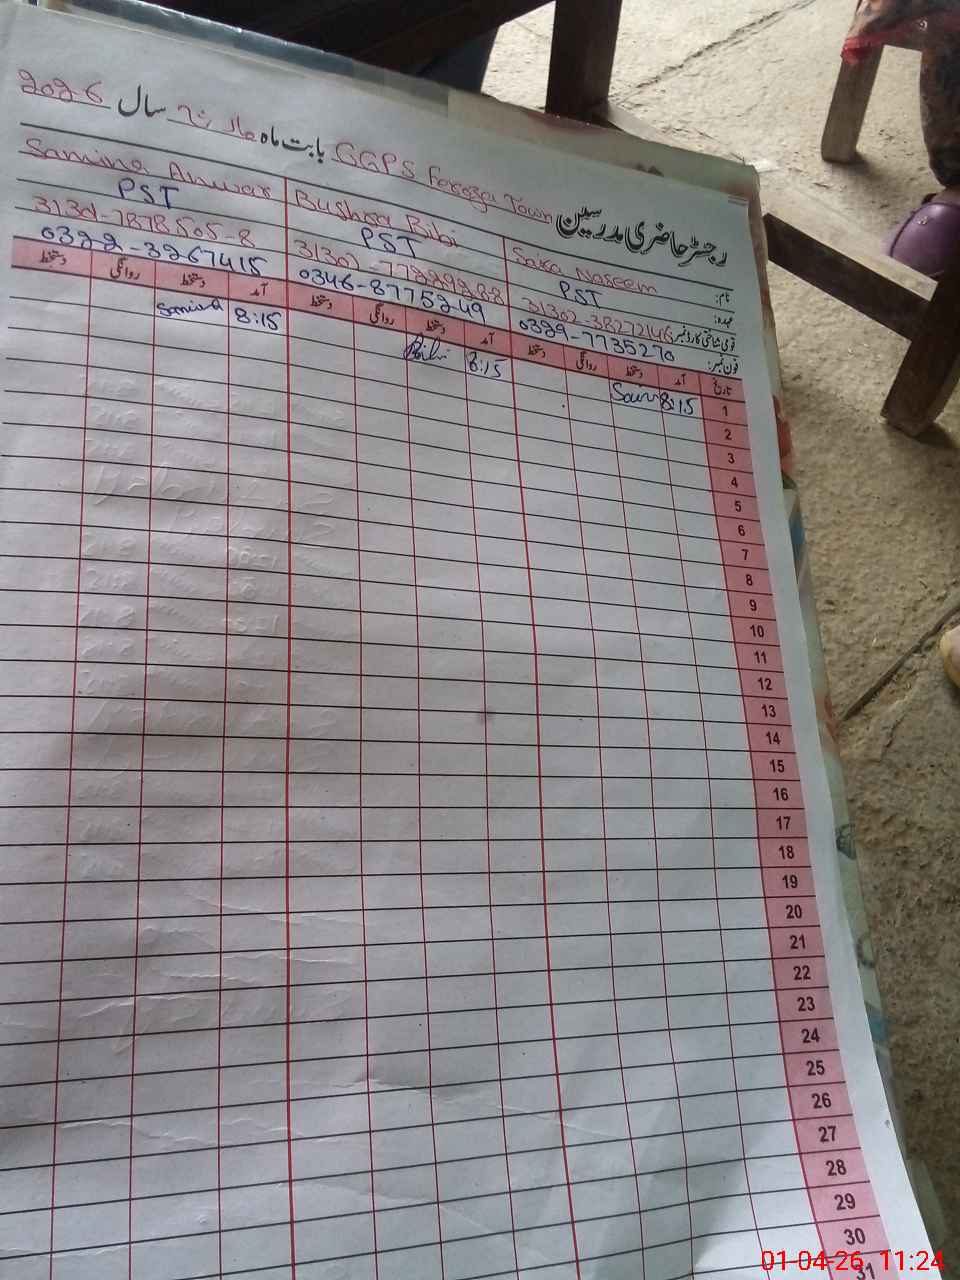 رجسٹر حاضری مدرسین GGPS Feroza Town بابت ماہ سال 2026
نام: Saira Naseem Bushra Bibi Samina Anwar
عہدہ: PST PST PST
قومی شناختی کارڈ نمبر
فون نمبر: 0329-7735270 0346-8775249 0322-3267415
تاریخ آمد دستخط روانگی دستخط آمد دستخط روانگی دستخط آمد دستخط روانگی دستخط
1 8:15 Saira 8:15 Bibi 8:15 Samina
2
3
4
5
6
7
8
9
10
11
12
13
14
15
16
17
18
19
20
21
22
23
24
25
26
27
28
29
30
31
01-04-26, 11:24